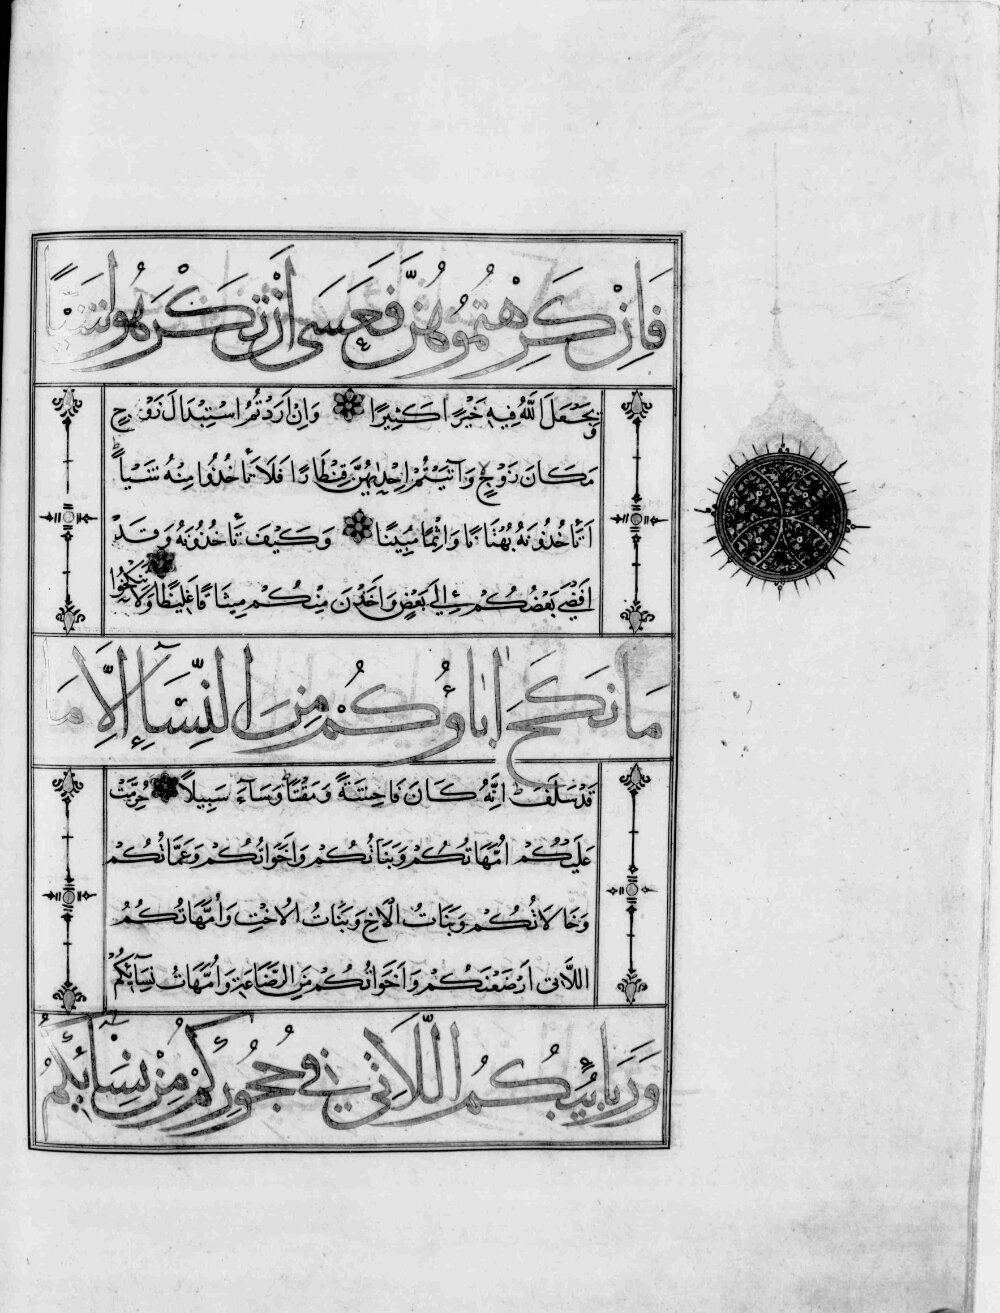 فَاِنْ كَرِهْتُمُوهُنَّ فَعَسَى اَنْ تَكْرَهُوا شَيْئًا
وَيَجْعَلَ اللّٰهُ فِيهِ خَيْرًا كَثِيرًا وَاِنْ اَرَدْتُمُ اسْتِبْدَالَ زَوْجٍ
مَكَانَ زَوْجٍ وَآتَيْتُمْ اِحْدٰيهُنَّ قِنْطَارًا فَلَا تَأْخُذُوا مِنْهُ شَيْئًا
اَتَأْخُذُونَهُ بُهْتَانًا وَاِثْمًا مُبِينًا وَكَيْفَ تَأْخُذُونَهُ وَقَدْ
اَفْضَى بَعْضُكُمْ اِلَى بَعْضٍ وَاَخَذْنَ مِنْكُمْ مِيثَاقًا غَلِيظًا وَلَا تَنْكِحُوا
مَا نَكَحَ اٰبَاؤُكُمْ مِنَ النِّسَآءِ اِلَّا مَا
قَدْ سَلَفَ اِنَّهُ كَانَ فَاحِشَةً وَمَقْتًا وَسَآءَ سَبِيلًا حُرِّمَتْ
عَلَيْكُمْ اُمَّهَاتُكُمْ وَبَنَاتُكُمْ وَاَخَوَاتُكُمْ وَعَمَّاتُكُمْ
وَخَالَاتُكُمْ وَبَنَاتُ الْاَخِ وَبَنَاتُ الْاُخْتِ وَاُمَّهَاتُكُمُ
اللَّاتِي اَرْضَعْنَكُمْ وَاَخَوَاتُكُمْ مِنَ الرَّضَاعَةِ وَاُمَّهَاتُ نِسَآئِكُمْ
وَرَبَائِبُكُمُ اللَّاتِي فِي حُجُورِكُمْ مِنْ نِسَآئِكُمُ